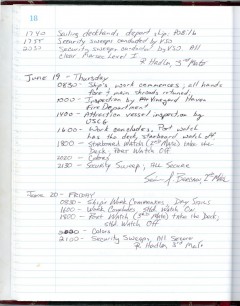 18
1740 Sailing deckhands depart ship
1755 Security sweeps conducted by
2030 Security sweeps conducted. All
clear. Marsec Level I
R. Hadley, 3rd Mate
June 19 - Thursday
0830 - Ship's work commences; all hands
fore & main shrouds retuned,
1000 - Inspection by Vineyard Haven
Fire Department
1400 - Attraction vessel inspection by
USCG
1600 - Work concludes, Port watch
has the deck, starboard watch off
1800 - Starboard Watch (2nd Mate) take the
Deck, Port Watch Off
2020 - Colors
2130 - Security Sweep, All Secure
2nd Mate
June 20 - Friday
0830 - Ship's Work Commences, Dry Sails
1600 - Work Concludes, Stbd. Watch On
1800 - Port Watch (3rd Mate) Take the Deck;
Stbd. Watch Off
Colors
2100 - Security Sweep, All Secure
R. Hadley 3rd Mate